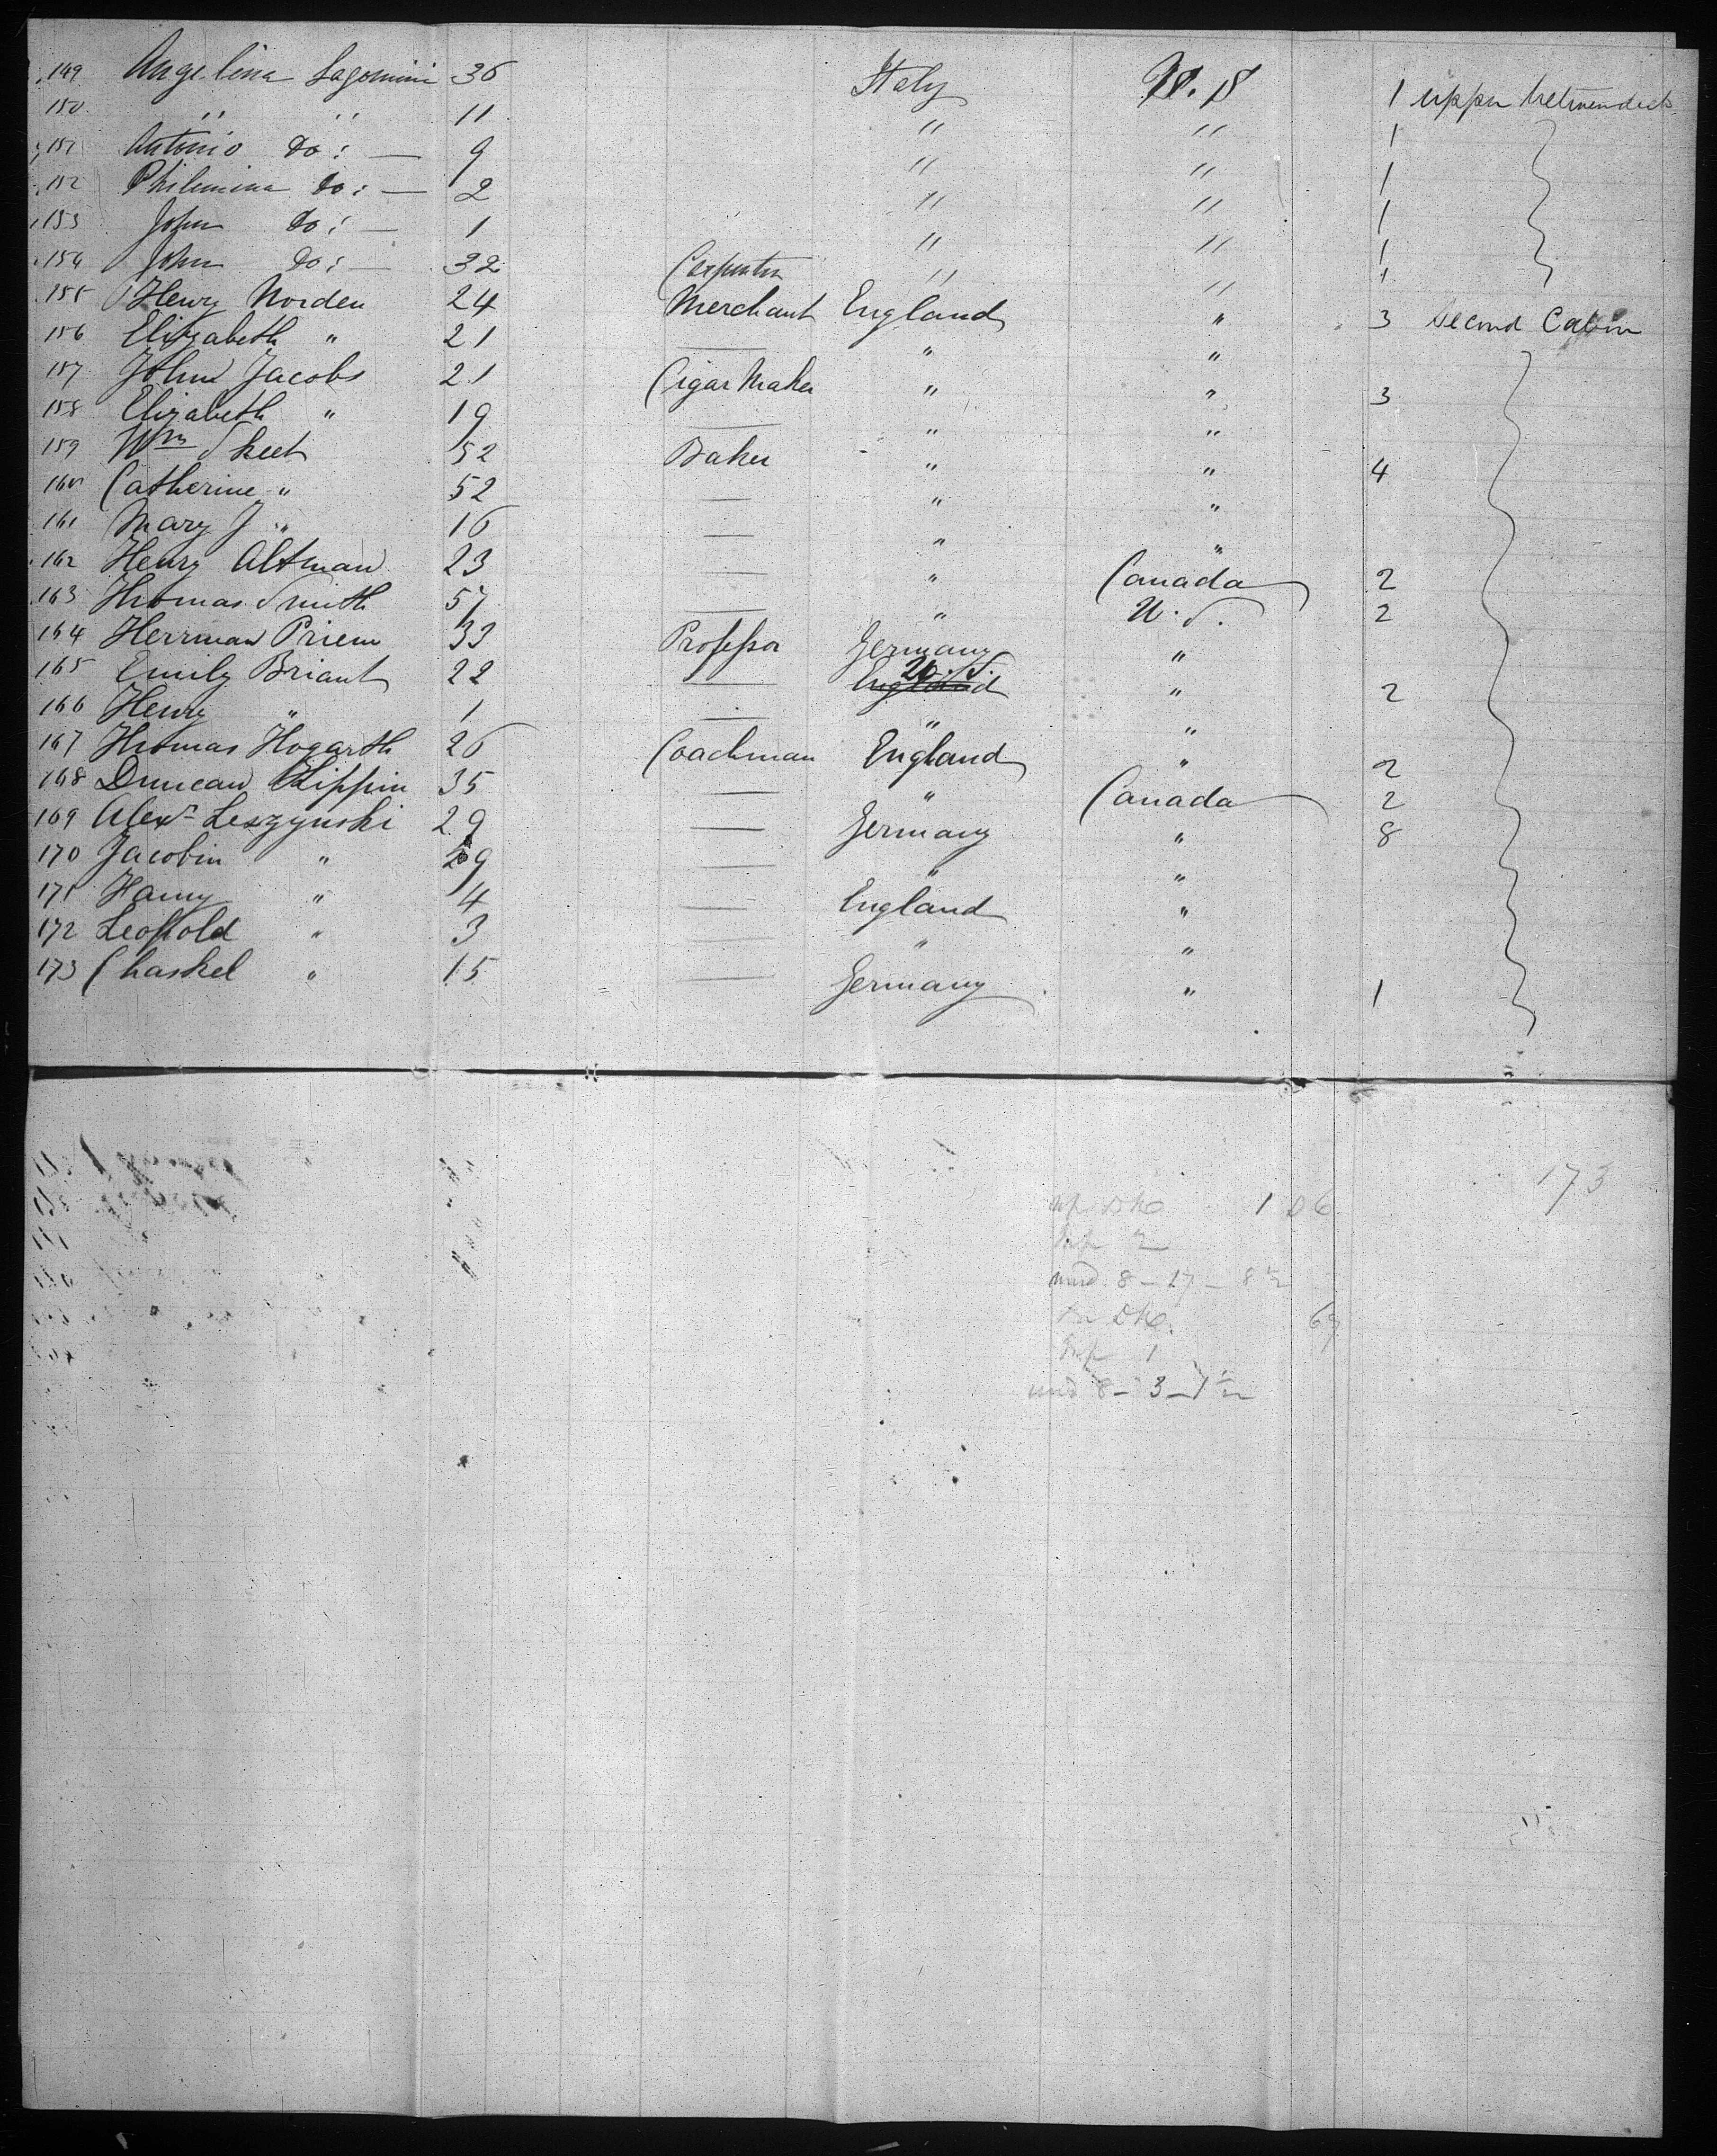 149 Angelina Lagomini 36 Italy U. S 1 upper betweendecks
150 " " 11 " " 1
151 Antonio Do: — 9 " " 1
152 Philimina Do: — 2 " " 1
153 John Do: — 1 " " 1
154 John Do: — 32 Carpenter " " 1
155 Henry Norden 24 Merchant England " 3 Second Cabin
156 Elizabeth " 21 — " "
157 John Jacobs 21 Cigar Maker " " 3
158 Elizabeth " 19 — " "
159 Wm Skeet 52 Baker " " 4
160 Catherine " 52 — " "
161 Mary J " 16 — " "
162 Henry Altman 23 — " Canada 2
163 Thomas Smith 57 — " U. S. 2
164 Herrman Priem 33 Professor Germany "
165 Emily Briant 22 — England U. S. " 2
166 Henry " 1 — " "
167 Thomas Hogarth 26 Coachman England " 2
168 Duncan 35 — " Canada 2
169 Alexr Leszynski 29 — Germany " 8
170 Jacobin " 29 — " "
171 Harry " 4 — England "
172 Leopold " 3 — " "
173 Chaskel " 15 — Germany " 1
173
up Dk 106
2
8 - 27 - 8
Dk 69
1
8 - 3 - 1